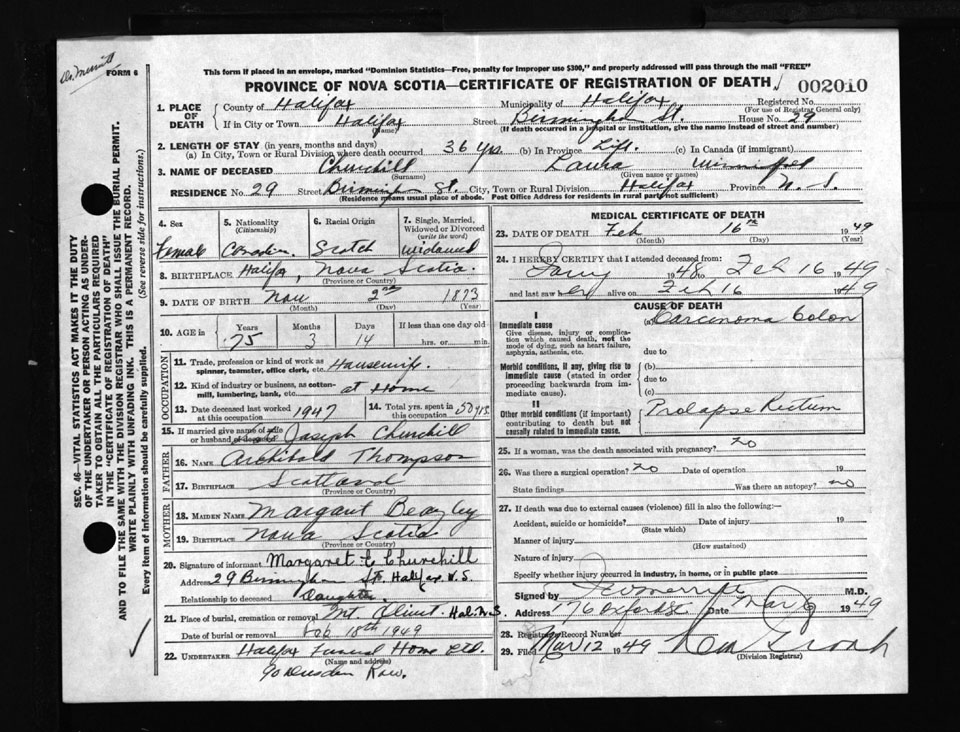 Dr. Merritt
FORM 6
This form if placed in an envelope, marked "Dominion Statistics—Free, penalty for improper use $300," and properly addressed will pass through the mail "FREE"
PROVINCE OF NOVA SCOTIA—CERTIFICATE OF REGISTRATION OF DEATH 002010
1. PLACE OF DEATH
County of Halifax Municipality of Halifax Registered No.
(For use of Registrar General only)
If in City or Town Halifax Street Birmingham St. House No. 29
(Name) (If death occurred in a hospital or institution, give the name instead of street and number)
2. LENGTH OF STAY (in years, months and days)
(a) In City, Town or Rural Division where death occurred 36 yrs. (b) In Province Life. (c) In Canada (if immigrant)
3. NAME OF DECEASED Churchill Laura Winnifred
(Surname) (Given name or names)
RESIDENCE No. 29 Street Birmingham St. City, Town or Rural Division Halifax Province N. S.
(Residence means usual place of abode. Post Office Address for residents in rural parts not sufficient)
4. Sex
Female
5. Nationality (Citizenship)
Canadian
6. Racial Origin
Scotch
7. Single, Married, Widowed or Divorced (write the word)
Widowed
8. BIRTHPLACE Halifax, Nova Scotia.
(Province or Country)
9. DATE OF BIRTH Nov 2nd 1873
(Month) (Day) (Year)
10. AGE in Years Months Days If less than one day old
75 3 14 hrs. or min.
OCCUPATION
11. Trade, profession or kind of work as spinner, teamster, office clerk, etc. Housewife.
12. Kind of industry or business, as cotton-mill, lumbering, bank, etc. at Home
13. Date deceased last worked at this occupation 1947
14. Total yrs. spent in this occupation 50 yrs.
15. If married give name of wife or husband of deceased Joseph Churchill
FATHER
16. NAME Archibald Thompson
17. BIRTHPLACE Scotland
(Province or Country)
MOTHER
18. MAIDEN NAME Margaret Beazley
19. BIRTHPLACE Nova Scotia
(Province or Country)
20. Signature of informant Margaret C Churchill
Address 29 Birmingham St. Halifax N.S.
Relationship to deceased Daughter.
21. Place of burial, cremation or removal Mt. Olivet. Hal. N.S.
Date of burial or removal Feb 18th 1949
22. UNDERTAKER Halifax Funeral Home Ltd.
(Name and address)
90 Dresden Row.
MEDICAL CERTIFICATE OF DEATH
23. DATE OF DEATH Feb 16th 1949
(Month) (Day) (Year)
24. I HEREBY CERTIFY that I attended deceased from:
1948 to Feb 16 1949
and last saw her alive on Feb 16 1949
CAUSE OF DEATH
I
Immediate cause (a) Carcinoma Colon
Give disease, injury or complication which caused death, not the mode of dying, such as heart failure, asphyxia, asthenia, etc.
due to
Morbid conditions, if any, giving rise to immediate cause (stated in order proceeding backwards from immediate cause).
(b)
due to
(c)
II
Other morbid conditions (if important) contributing to death but not causally related to immediate cause.
Prolapse Rectum
25. If a woman, was the death associated with pregnancy? No
26. Was there a surgical operation? No Date of operation 19
State findings Was there an autopsy? No
27. If death was due to external causes (violence) fill in also the following:—
Accident, suicide or homicide? Date of injury 19
(State which)
Manner of injury
(How sustained)
Nature of injury
Specify whether injury occurred in industry, in home, or in public place
Signed by Merritt M.D.
Address 176 Oxford St Date Mar 9 1949
28. Registrar's Record Number
29. Filed Mar 12 1949
(Division Registrar)
SEC. 46—VITAL STATISTICS ACT MAKES IT THE DUTY
OF THE UNDERTAKER OR PERSON ACTING AS UNDER-
TAKER TO OBTAIN ALL THE PARTICULARS REQUIRED
IN THE "CERTIFICATE OF REGISTRATION OF DEATH"
AND TO FILE THE SAME WITH THE DIVISION REGISTRAR WHO SHALL ISSUE THE BURIAL PERMIT.
WRITE PLAINLY WITH UNFADING INK. THIS IS A PERMANENT RECORD.
Every item of information should be carefully supplied. (See reverse side for instructions.)